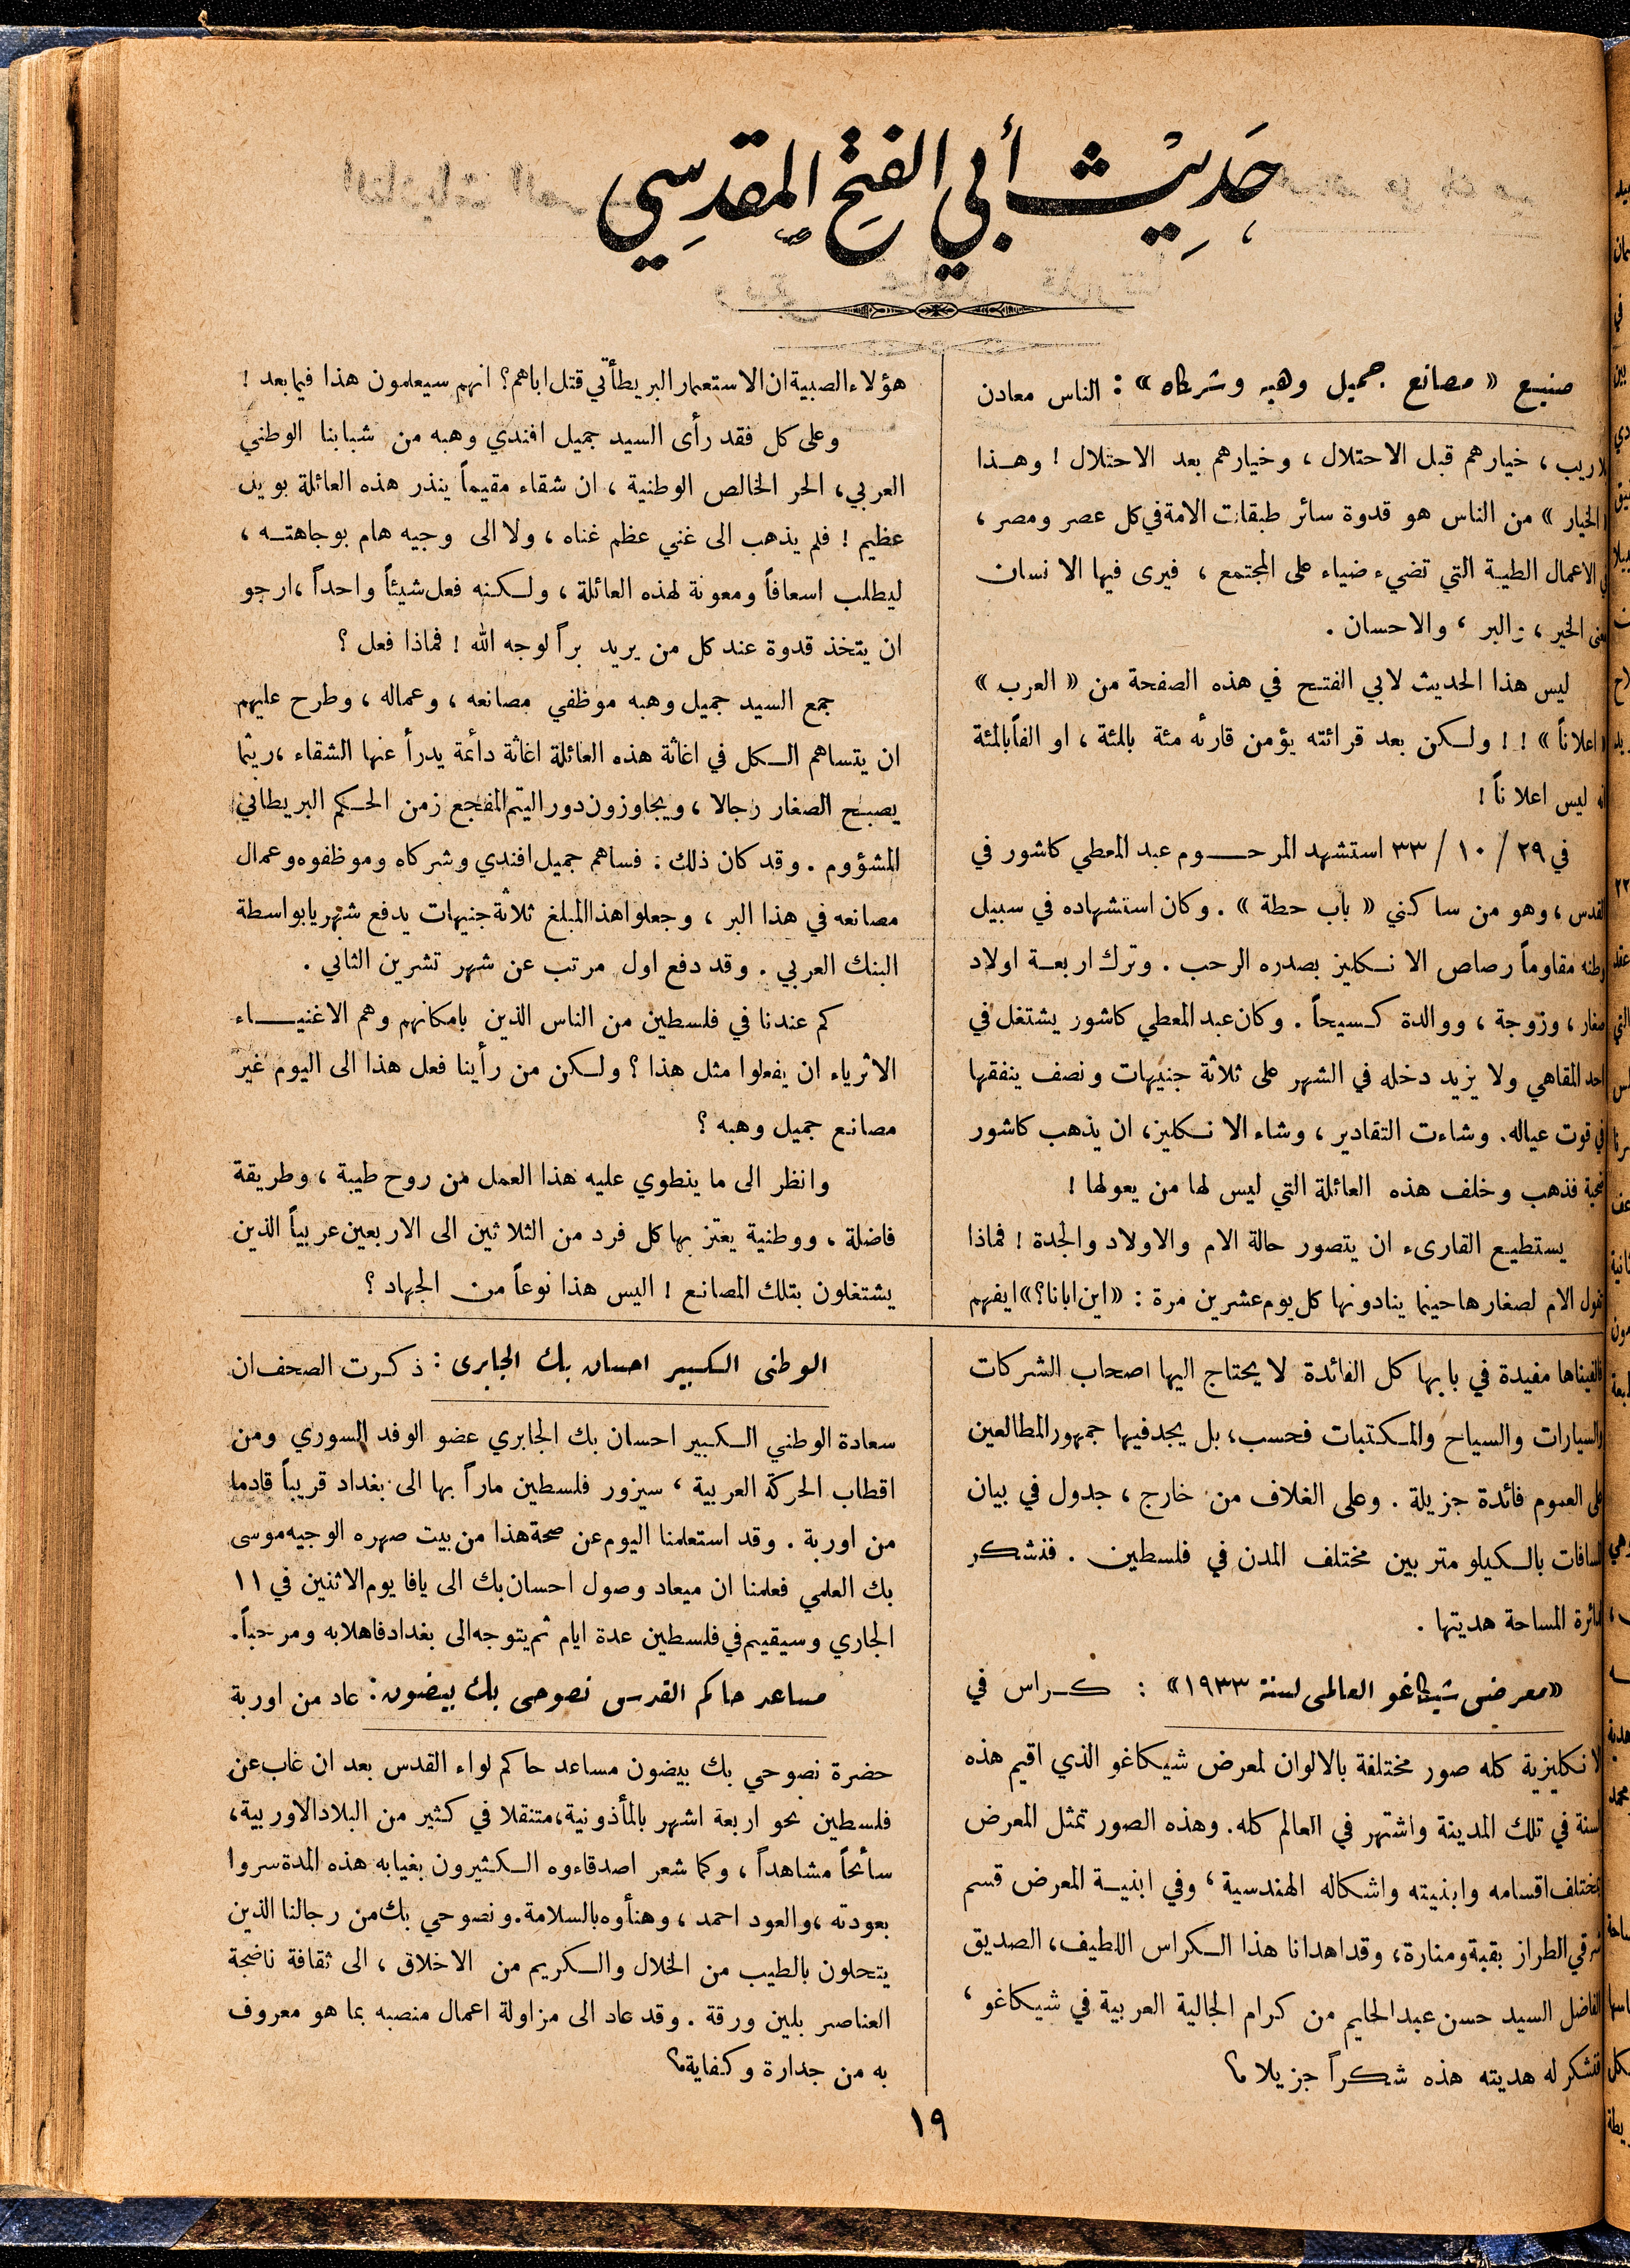 حَدِيْث أبي الفتح المقدسي
صنيع « مصانع جميل وهبه وشركاه » : الناس معادن
لاريب ، خيارهم قبل الاحتلال ، وخيارهم بعد الاحتلال ! وهذا
« الخيار » من الناس هو قدوة سائر طبقات الامة في كل عصر ومصر ،
في الاعمال الطيبة التي تضيء ضياء على المجتمع ، فيرى فيها الانسان
معنى الخير ، والبر ، والاحسان .
ليس هذا الحديث لابي الفتح في هذه الصفحة من « العرب »
« اعلاناً » ! ! ولكن بعد قرائته يؤمن قارئه مئة بالمئة ، او الفاً بالمئة
انه ليس اعلاناً !
في ٢٩ / ١٠ / ٣٣ استشهد المرحوم عبد المعطي كاشور في
القدس ، وهو من ساكني « باب حطة » . وكان استشهاده في سبيل
وطنه مقاوماً رصاص الانكليز بصدره الرحب . وترك اربعة اولاد
صغار ، وزوجة ، ووالدة كسيحاً . وكان عبد المعطي كاشور يشتغل في
احد المقاهي ولا يزيد دخله في الشهر على ثلاثة جنيهات ونصف ينفقها
في قوت عياله . وشاءت التقادير ، وشاء الانكليز ، ان يذهب كاشور
ضحية فذهب وخلف هذه العائلة التي ليس لها من يعولها !
يستطيع القارىء ان يتصور حالة الام والاولاد والجدة ! فماذا
تقول الام لصغارها حينما ينادونها كل يوم عشرين مرة : «اين ابانا؟» ايفهم
هؤلاء الصبية ان الاستعمار البريطاني قتل اباهم؟ انهم سيعلمون هذا فيما بعد !
وعلى كل فقد رأى السيد جميل افندي وهبه من شبابنا الوطني
العربي ، الحر الخالص الوطنية ، ان شقاء مقيماً ينذر هذه العائلة بويل
عظيم ! فلم يذهب الى غني عظم غناه ، ولا الى وجيه هام بوجاهته ،
ليطلب اسعافاً ومعونة لهذه العائلة ، ولكنه فعل شيئاً واحداً ، ارجو
ان يتخذ قدوة عند كل من يريد براً لوجه الله ! فماذا فعل ؟
جمع السيد جميل وهبه موظفي مصانعه ، وعماله ، وطرح عليهم
ان يتساهم الكل في اغاثة هذه العائلة اغاثة دائمة يدرأ عنها الشقاء ، ريثما
يصبح الصغار رجالا ، ويجاوزون دور اليتم المفجع زمن الحكم البريطاني
المشؤوم . وقد كان ذلك : فساهم جميل افندي وشركاه وموظفوه وعمال
مصانعه في هذا البر ، وجعلوا هذا المبلغ ثلاثة جنيهات يدفع شهريا بواسطة
البنك العربي . وقد دفع اول مرتب عن شهر تشرين الثاني .
كم عندنا في فلسطين من الناس الذين بامكانهم وهم الاغنياء
الاثرياء ان يفعلوا مثل هذا ؟ ولكن من رأينا فعل هذا الى اليوم غير
مصانع جميل وهبه ؟
وانظر الى ما ينطوي عليه هذا العمل من روح طيبة ، وطريقة
فاضلة ، ووطنية يعتز بها كل فرد من الثلاثين الى الاربعين عربياً الذين
يشتغلون بتلك المصانع ! اليس هذا نوعاً من الجهاد ؟
فالفيناها مفيدة في بابها كل الفائدة لا يحتاج اليها اصحاب الشركات
والسيارات والسياح والمكتبات فحسب ، بل يجد فيها جمهور المطالعين
على العموم فائدة جزيلة . وعلى الغلاف من خارج ، جدول في بيان
المسافات بالكيلو متر بين مختلف المدن في فلسطين . فنشكر
لدائرة المساحة هديتها .
«معرض شيكاغو العالمي لسنة ١٩٣٣» : كراس في
الانكليزية كله صور مختلفة بالالوان لمعرض شيكاغو الذي اقيم هذه
السنة في تلك المدينة واشتهر في العالم كله . وهذه الصور تمثل المعرض
بمختلف اقسامه وابنيته واشكاله الهندسية ، وفي ابنية المعرض قسم
شرقي الطراز بقبة ومنارة ، وقد اهدانا هذا الكراس اللطيف ، الصديق
الفاضل السيد حسن عبد الحليم من كرام الجالية العربية في شيكاغو ،
فنشكر له هديته هذه شكراً جزيلا ؟
الوطني الكبير احسان بك الجابري : ذكرت الصحف ان
سعادة الوطني الكبير احسان بك الجابري عضو الوفد السوري ومن
اقطاب الحركة العربية ، سيزور فلسطين ماراً بها الى بغداد قريباً قادما
من اوربة . وقد استعلمنا اليوم عن صحة هذا من بيت صهره الوجيه موسى
بك العلمي فعلمنا ان ميعاد وصول احسان بك الى يافا يوم الاثنين في ١١
الجاري وسيقيم في فلسطين عدة ايام ثم يتوجه الى بغداد فاهلا به ومرحباً .
مساعد حاكم القدس نصوحي بك بيضون : عاد من اوربة
حضرة نصوحي بك بيضون مساعد حاكم لواء القدس بعد ان غاب عن
فلسطين نحو اربعة اشهر بالمأذونية ، متنقلا في كثير من البلاد الاوربية ،
سائحاً مشاهداً ، وكما شعر اصدقاءوه الكثيرون بغيابه هذه المدة سروا
بعودته ، والعود احمد ، وهنأوه بالسلامة . ونصوحي بك من رجالنا الذين
يتحلون بالطيب من الخلال والكريم من الاخلاق ، الى ثقافة ناضجة
العناصر بلين ورقة . وقد عاد الى مزاولة اعمال منصبه بما هو معروف
به من جدارة وكفاية ؟
١٩